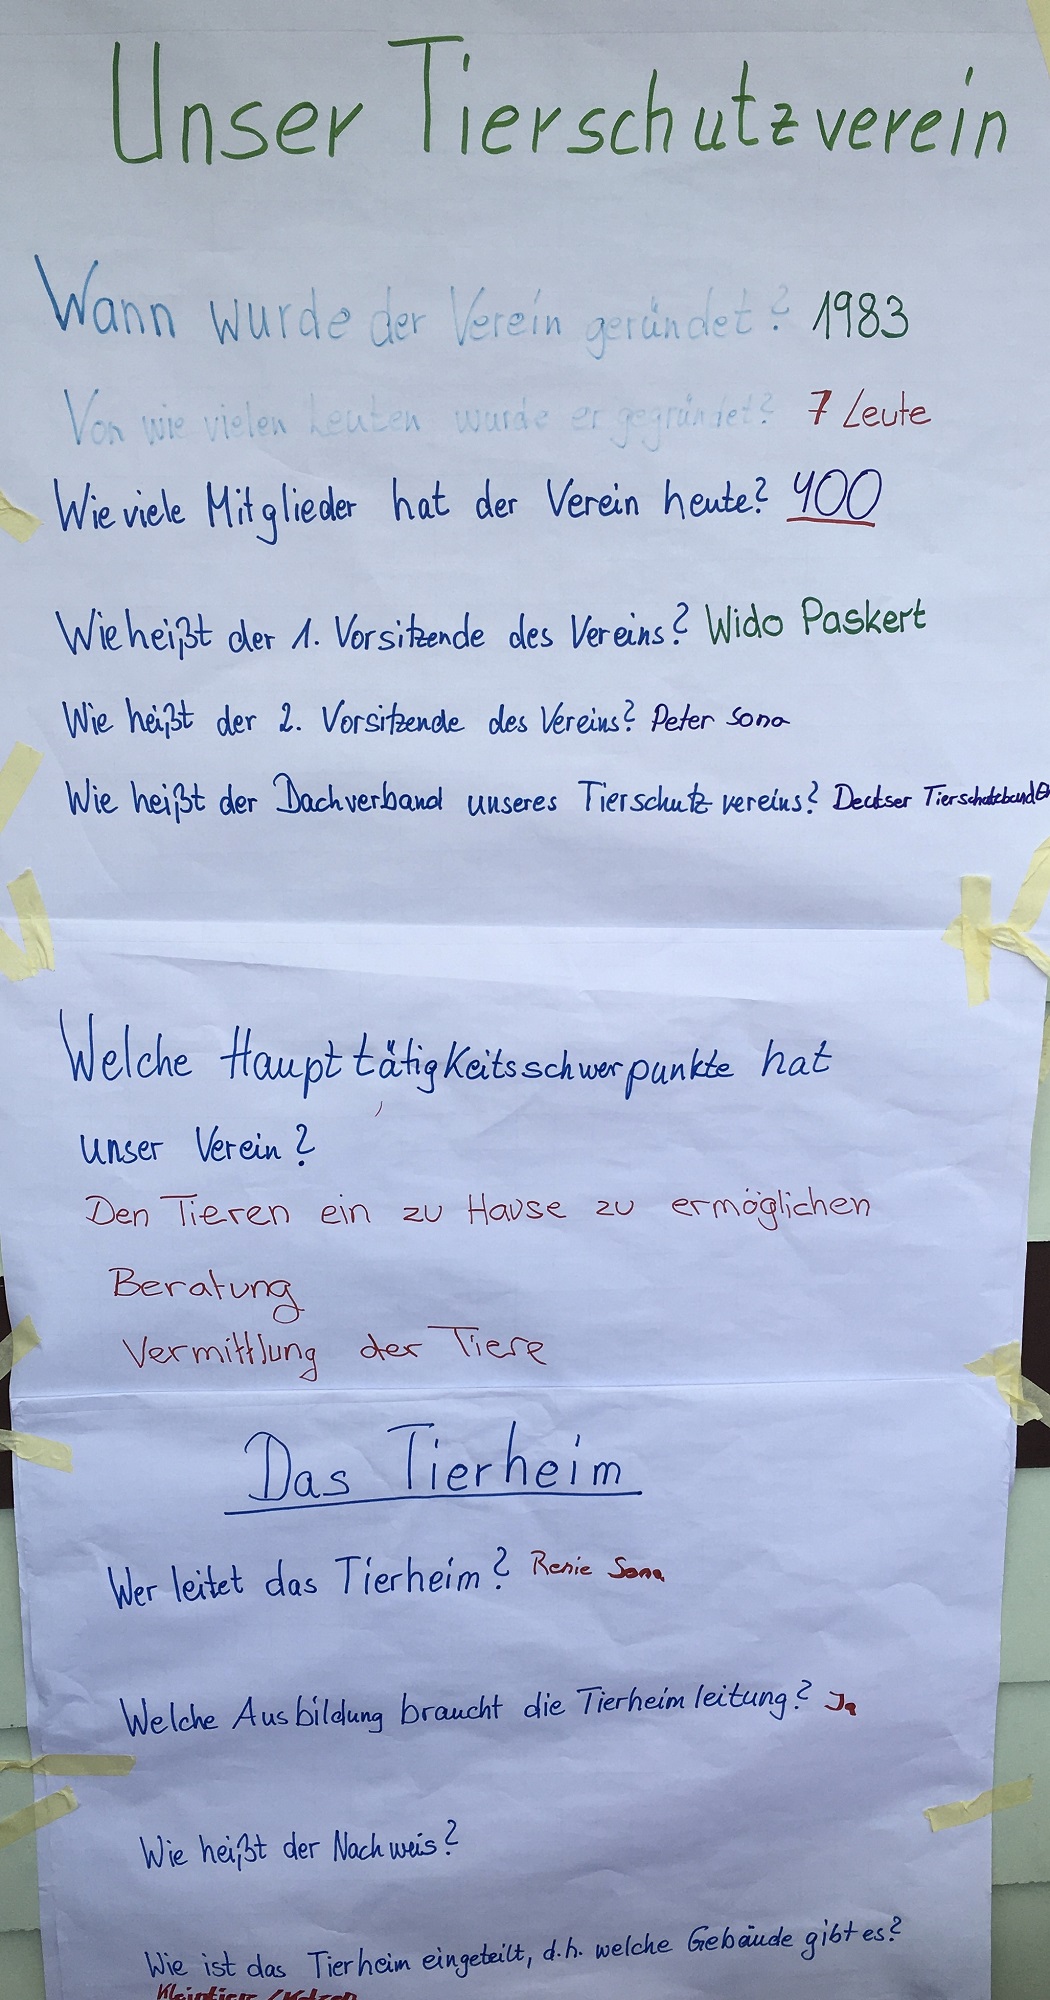 Unser Tierschutzverein
Wann wurde der Verein geründet? 1983
Von wie vielen Leuten wurde er gegründet? 7 Leute
Wie viele Mitglieder hat der Verein heute? 400
Wie heißt der 1. Vorsitzende des Vereins? Wido Paskert
Wie heißt der 2. Vorsitzende des Vereins? Peter Sona
Wie heißt der Dachverband unseres Tierschutzvereins? Deutser Tierschutzbund
Welche Haupttätigkeitsschwerpunkte hat
unser Verein?
Den Tieren ein zu Hause zu ermöglichen
Beratung
Vermittlung der Tiere
Das Tierheim
Wer leitet das Tierheim? Renie Sona
Welche Ausbildung braucht die Tierheimleitung? Ja
Wie heißt der Nachweis?
Wie ist das Tierheim eingeteilt, d.h. welche Gebäude gibt es?